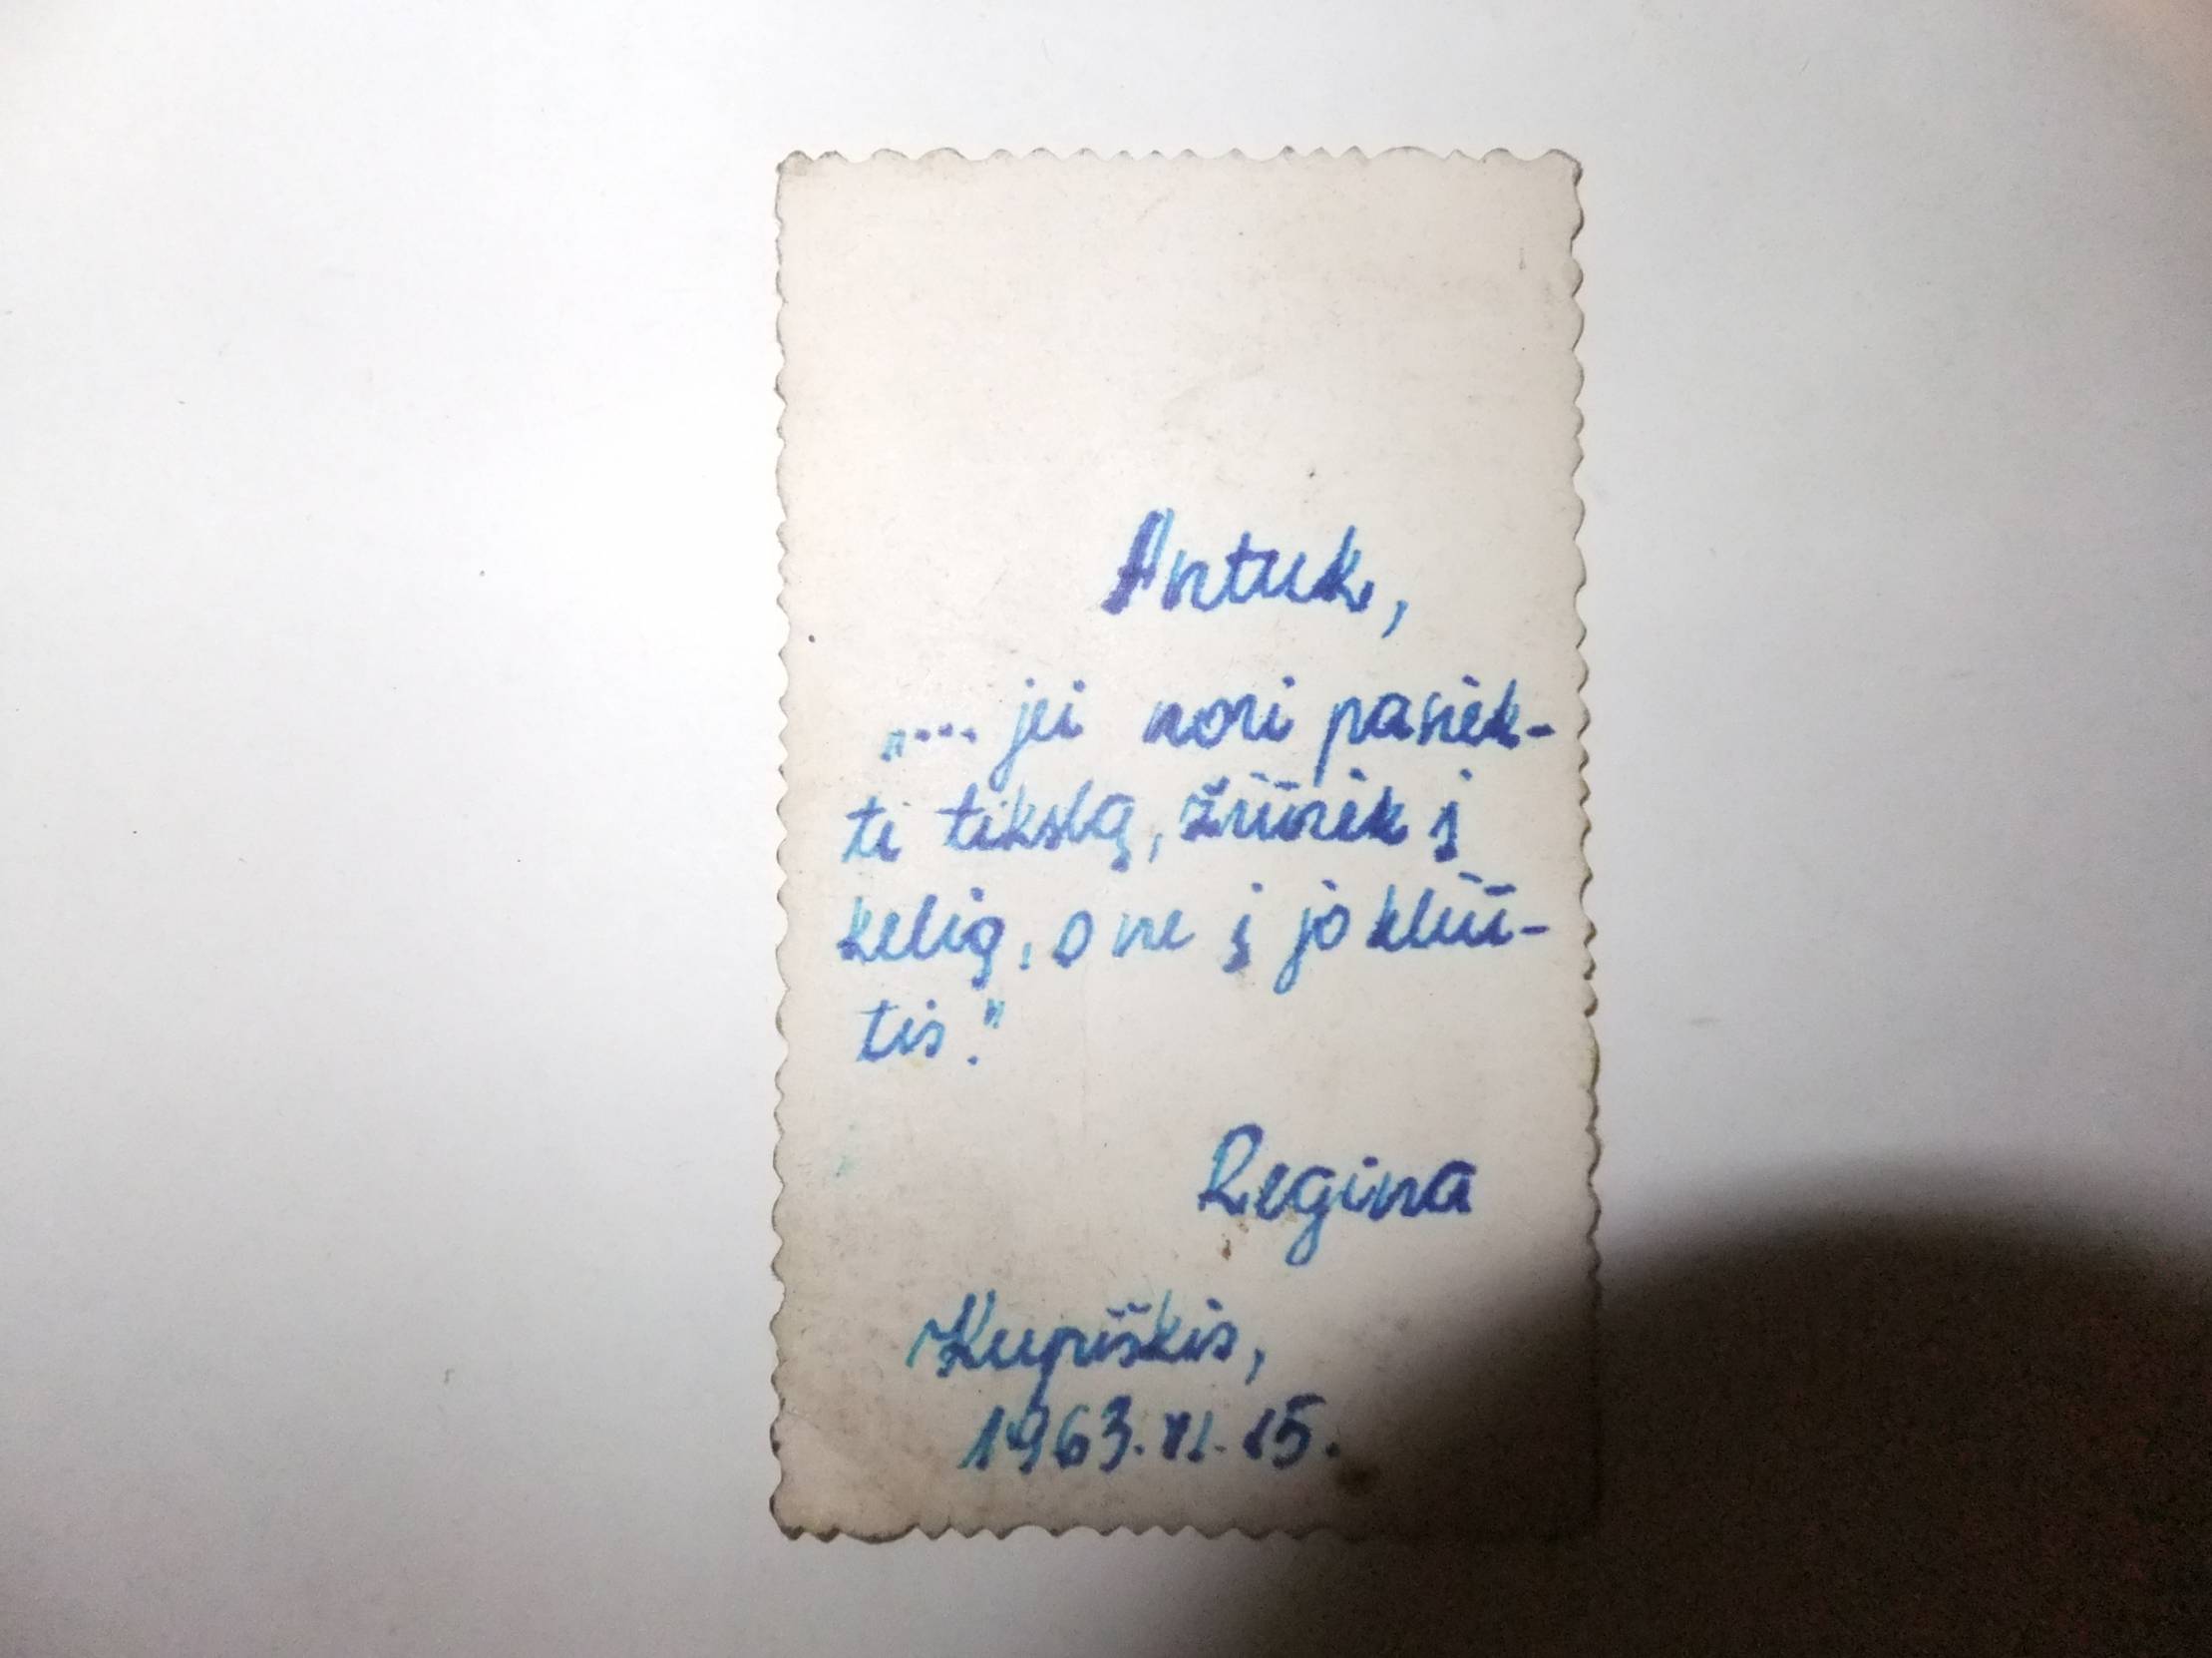 Antuk,
"... jei nori pasiek-
ti tikslą, žiūrėk į
kelią, o ne į jo kliū-
tis."
Regina
Kupiškis,
1963.VI.15.